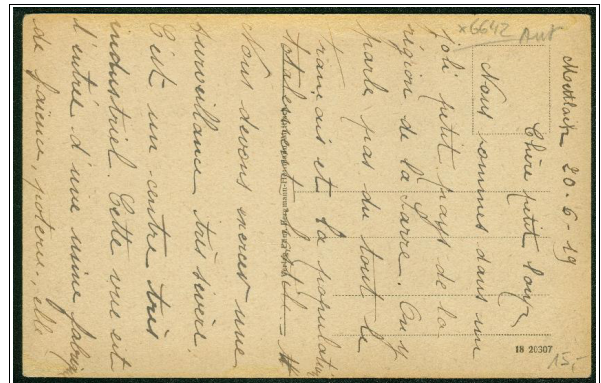 Mettlach 20-6-19
Chère petit loup
Nous sommes dans un
joli petit pays de la
région de la Sarre. On y
parle pas du tout le
français et la population
totalement hostile -
Nous devons exercer une
surveillance très sévère.
C'est un centre très
industriel. Cette vue est
l'entrée d'une usine fabriq
de faience, poterie, elle
x6642
Ant
18 20307
15,-